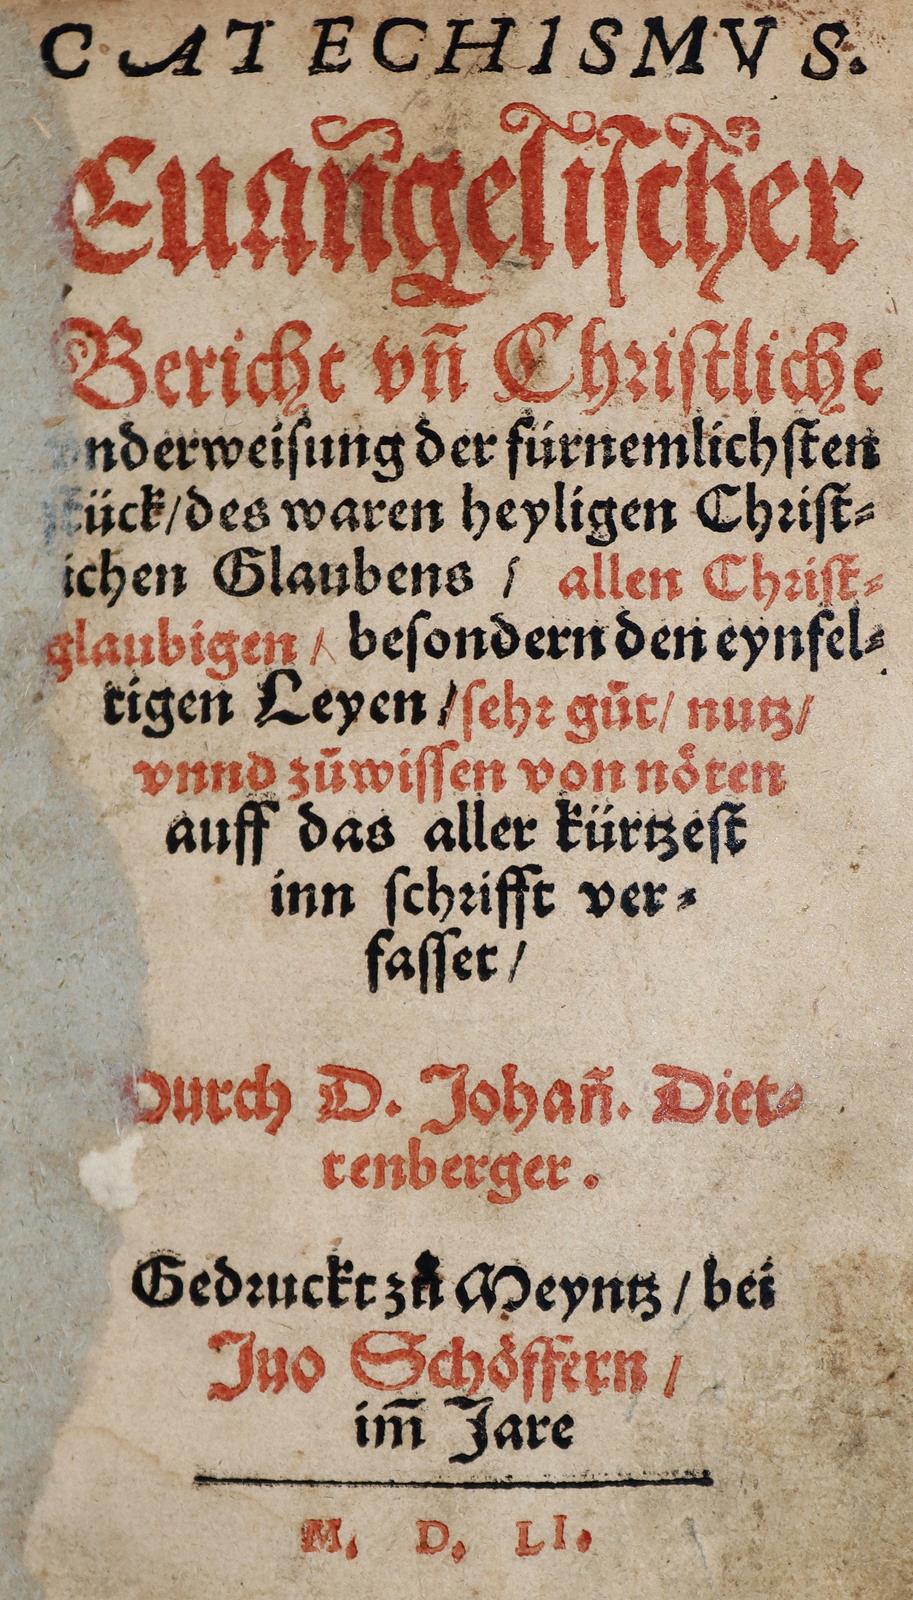 CATECHISMVS.
Euañgelischer
Bericht vñ Christliche
nderweisung der fürnemlichsten
stück/des waren heyligen Christ⸗
ichen Glaubens / allen Christ⸗
glaubigen / besondern den eynfel⸗
tigen Leyen /sehr gůt/ nutz/
vnnd zůwissen von nöten
auff das aller kürtzest
inn schrifft ver⸗
fasset /
Durch D. Johañ. Diet⸗
tenberger.
Gedruckt zů Meyntz / bei
Juo Schöffern /
im̄ Jare
M. D. LI.